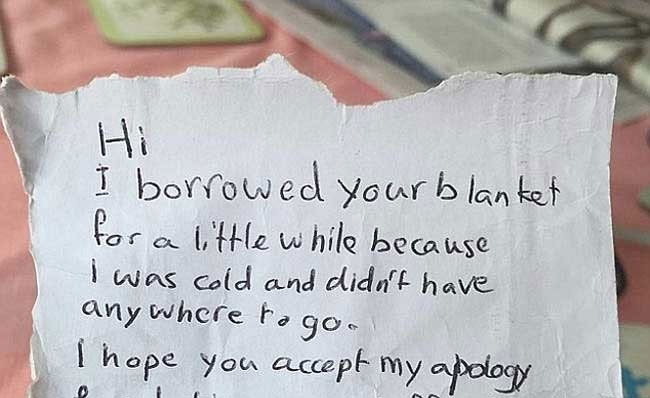 Hi
I borrowed your blanket
for a little while because
I was cold and didn't have
anywhere to go.
I hope you accept my apology